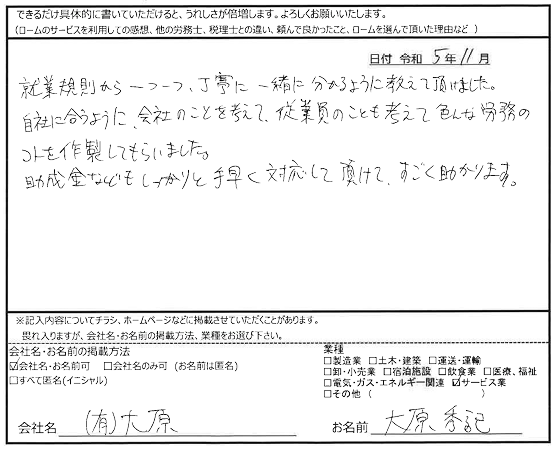 できるだけ具体的に書いていただけると、うれしさが倍増します。よろしくお願いいたします。
(ロームのサービスを利用しての感想、他の労務士、税理士との違い、頼んで良かったこと、ロームを選んで頂いた理由など )
日付 令和 5年11月
就業規則から一つ一つ、丁寧に一緒に分かるように教えて頂けました。
自社に合うように、会社のことを考えて、従業員のことも考えて色んな労務の
コトを作製してもらいました。
助成金などもしっかりと手早く対応して頂けて、すごく助かります。
※記入内容についてチラシ、ホームページなどに掲載させていただくことがあります。
畏れ入りますが、会社名・お名前の掲載方法、業種をお選び下さい。
会社名・お名前の掲載方法
☑会社名・お名前可 □会社名のみ可 (お名前は匿名)
□すべて匿名(イニシャル)
業種
□製造業 □土木・建築 □運送・運輸
□卸・小売業 □宿泊施設 □飲食業 □医療、福祉
□電気・ガス・エネルギー関連 ☑サービス業
□その他 ( )
会社名 (有)大原
お名前 大原秀記